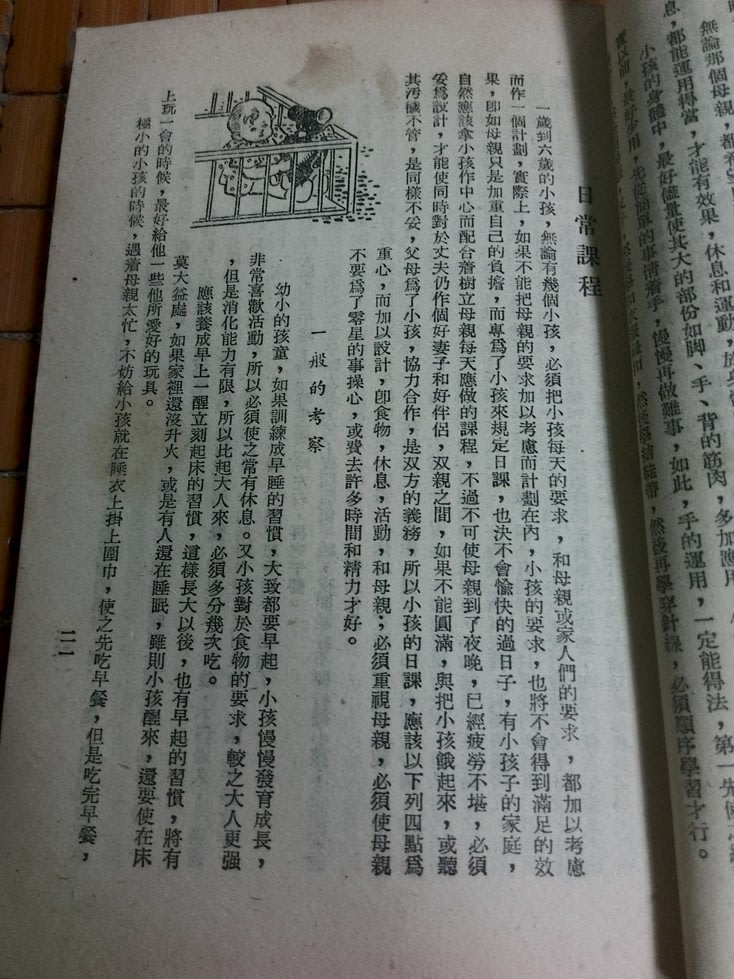 無論那個母親，都
息，都能運用得當，才能有效果，休息和運動，
小孩的身體中，最好儘量使其大的部份如脚、手、背的筋肉，多加應
最好少用，先從簡單的事情着手，慢慢再做難事，如此，手的運用，一定能得法，第一先使
然後再學穿針線，必須順序學習才行。
日常課程
一歲到六歲的小孩，無論有幾個小孩，必須把小孩每天的要求，和母親或家人們的要求，都加以考慮
而作一個計劃，實際上，如果不能把母親的要求加以考慮而計劃在內，小孩的要求，也將不會得到滿足的效
果，卽如母親只是加重自己的負擔，而專爲了小孩來規定日課，也決不會愉快的過日子，有小孩子的家庭，
自然應該拿小孩作中心而配合着樹立母親每天應做的課程，不過不可使母親到了夜晚，已經疲勞不堪，必須
妥爲設計，才能使同時對於丈夫仍作個好妻子和好伴侶，双親之間，如果不能圓滿，與把小孩餓起來，或聽
其汚穢不管，是同樣不妥，父母爲了小孩，協力合作，是双方的義務，所以小孩的日課，應該以下列四點爲
重心，而加以設計，卽食物，休息，活動，和母親；必須重視母親，必須使母親
不要爲了零星的事操心，或費去許多時間和精力才好。
一般的考察
幼小的孩童，如果訓練成早睡的習慣，大致都要早起，小孩慢慢發育成長，
非常喜歡活動，所以必須使之常有休息。又小孩對於食物的要求，較之大人更强
，但是消化能力有限，所以比起大人來，必須多分幾次吃。
應該養成早上一醒立刻起床的習慣，這樣長大以後，也有早起的習慣，將有
莫大益處，如果家裡還沒升火，或是有人還在睡眠，雖則小孩醒來，還要使在床
上玩一會的時候，最好給他一些他所愛好的玩具。
極小的小孩的時候，遇着母親太忙，不妨給小孩就在睡衣上掛上圍巾，使之先吃早餐，但是吃完早餐，
二一